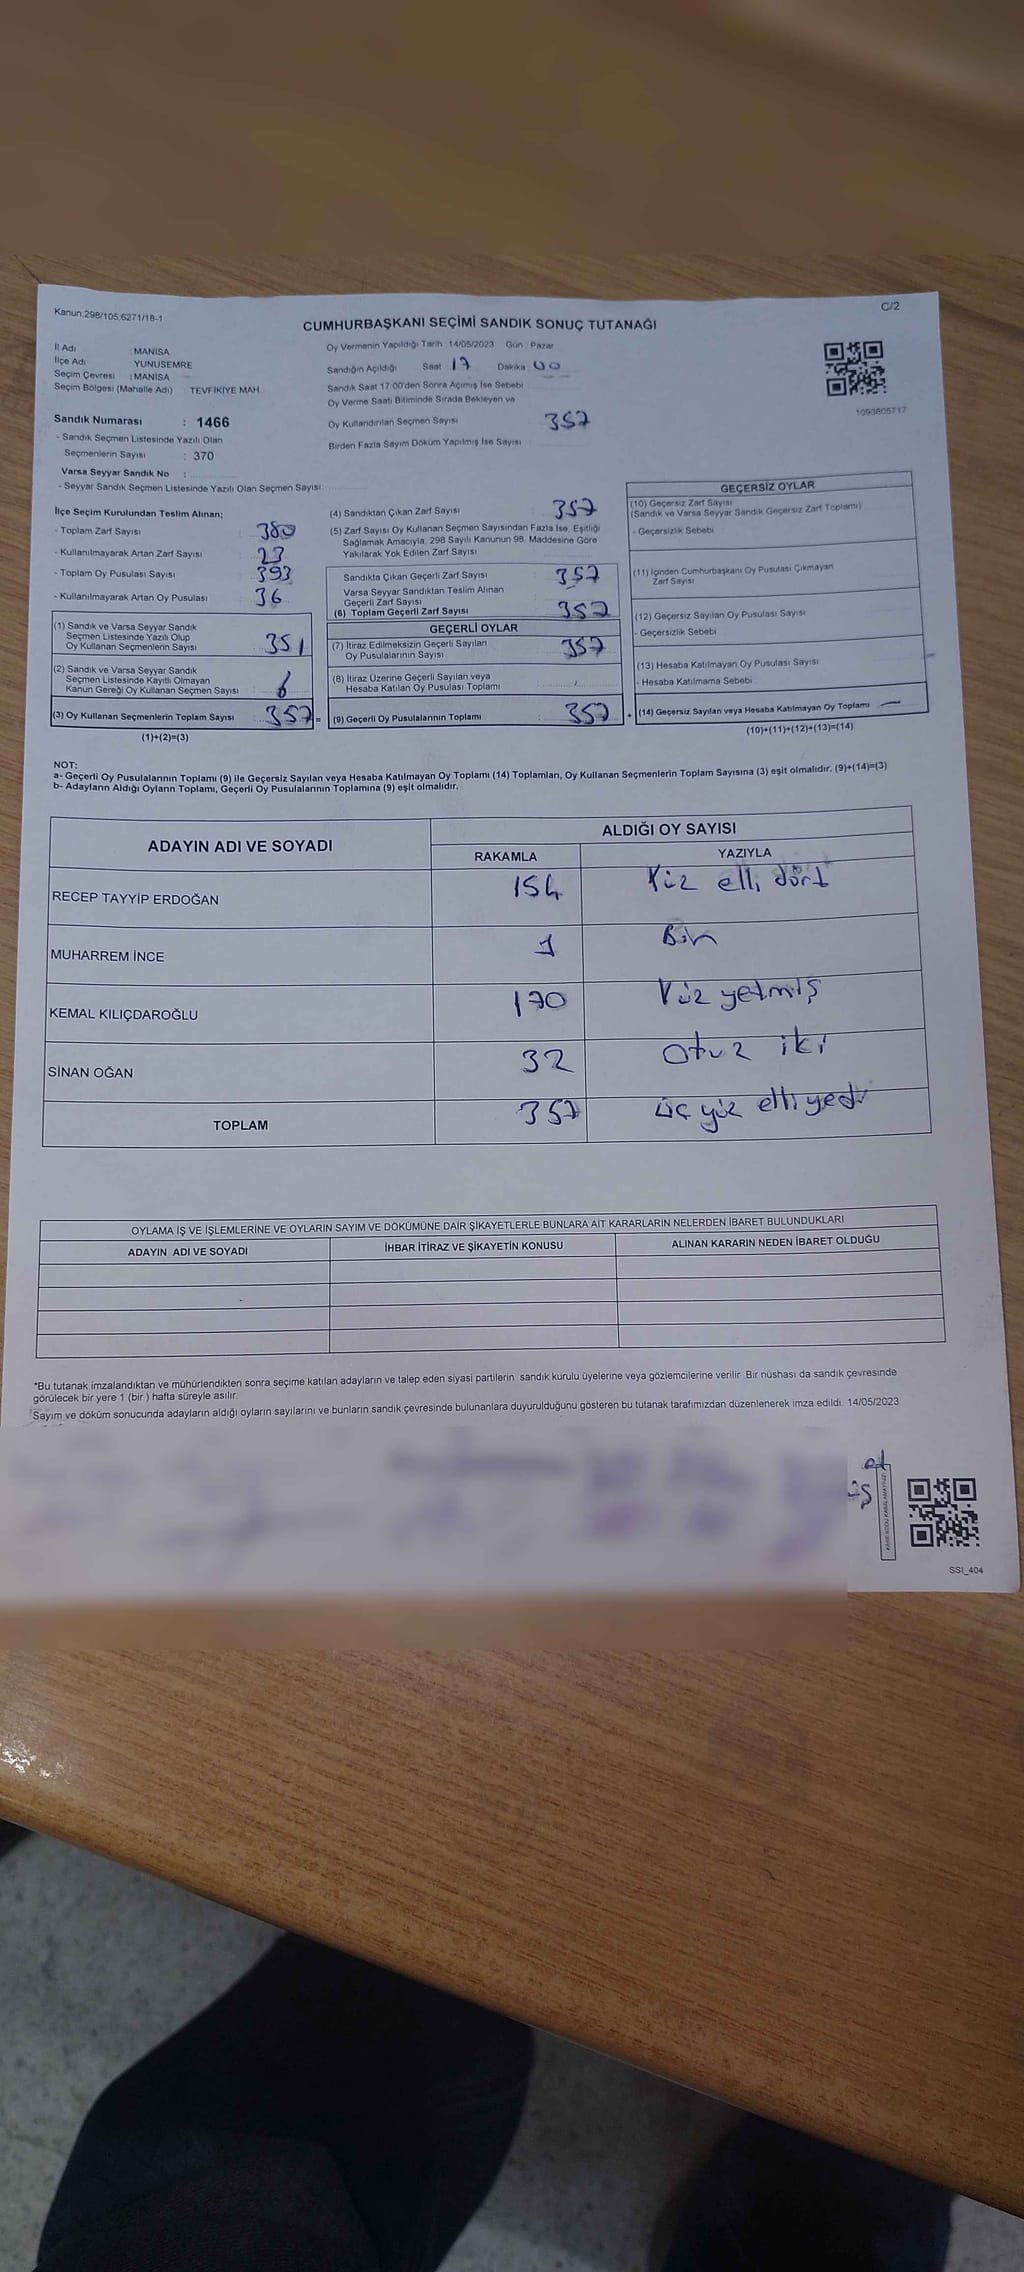 Kanun.298/105;6271/18-1
C/2
CUMHURBAŞKANI SEÇİMİ SANDIK SONUÇ TUTANAĞI
İl Adı : MANİSA
İlçe Adı : YUNUSEMRE
Seçim Çevresi : MANİSA
Seçim Bölgesi (Mahalle Adı) TEVFİKİYE MAH.
Sandık Numarası : 1466
- Sandık Seçmen Listesinde Yazılı Olan
Seçmenlerin Sayısı : 370
Varsa Seyyar Sandık No :
- Seyyar Sandık Seçmen Listesinde Yazılı Olan Seçmen Sayısı:
Oy Vermenin Yapıldığı Tarih : 14/05/2023 Gün : Pazar
Sandığın Açıldığı Saat 17 Dakika 00
Sandık Saat 17:00'den Sonra Açımış İse Sebebi
Oy Verme Saati Bitiminde Sırada Bekleyen ve
Oy Kullandırılan Seçmen Sayısı 357
Birden Fazla Sayım Döküm Yapılmış İse Sayısı
1093805717
İlçe Seçim Kurulundan Teslim Alınan;
- Toplam Zarf Sayısı 380
- Kullanılmayarak Artan Zarf Sayısı 23
- Toplam Oy Pusulası Sayısı 393
- Kullanılmayarak Artan Oy Pusulası 36
(1) Sandık ve Varsa Seyyar Sandık
Seçmen Listesinde Yazılı Olup
Oy Kullanan Seçmenlerin Sayısı 351
(2) Sandık ve Varsa Seyyar Sandık
Seçmen Listesinde Kayıtlı Olmayan
Kanun Gereği Oy Kullanan Seçmen Sayısı 6
(3) Oy Kullanan Seçmenlerin Toplam Sayısı : 357 =
(1)+(2)=(3)
(4) Sandıktan Çıkan Zarf Sayısı 357
(5) Zarf Sayısı Oy Kullanan Seçmen Sayısından Fazla İse, Eşitliği
Sağlamak Amacıyla, 298 Sayılı Kanunun 98. Maddesine Göre
Yakılarak Yok Edilen Zarf Sayısı
Sandıkta Çıkan Geçerli Zarf Sayısı 357
Varsa Seyyar Sandıktan Teslim Alınan
Geçerli Zarf Sayısı
(6) Toplam Geçerli Zarf Sayısı 357
GEÇERLİ OYLAR
(7) İtiraz Edilmeksizin Geçerli Sayılan
Oy Pusulalarının Sayısı 357
(8) İtiraz Üzerine Geçerli Sayılan veya
Hesaba Katılan Oy Pusulası Toplamı
(9) Geçerli Oy Pusulalarının Toplamı : 357 +
GEÇERSİZ OYLAR
(10) Geçersiz Zarf Sayısı
(Sandık ve Varsa Seyyar Sandık Geçersiz Zarf Toplamı)
- Geçersizlik Sebebi
(11) İçinden Cumhurbaşkanı Oy Pusulası Çıkmayan
Zarf Sayısı
(12) Geçersiz Sayılan Oy Pusulası Sayısı
- Geçersizlik Sebebi
(13) Hesaba Katılmayan Oy Pusulası Sayısı
- Hesaba Katılmama Sebebi
(14) Geçersiz Sayılan veya Hesaba Katılmayan Oy Toplamı —
(10)+(11)+(12)+(13)=(14)
NOT:
a- Geçerli Oy Pusulalarının Toplamı (9) ile Geçersiz Sayılan veya Hesaba Katılmayan Oy Toplamı (14) Toplamları, Oy Kullanan Seçmenlerin Toplam Sayısına (3) eşit olmalıdır. (9)+(14)=(3)
b- Adayların Aldığı Oyların Toplamı, Geçerli Oy Pusulalarının Toplamına (9) eşit olmalıdır.
ADAYIN ADI VE SOYADI ALDIĞI OY SAYISI
RAKAMLA YAZIYLA
RECEP TAYYİP ERDOĞAN 154 Yüz elli dört
MUHARREM İNCE 1 Bir
KEMAL KILIÇDAROĞLU 170 Yüz yetmiş
SİNAN OĞAN 32 Otuz iki
TOPLAM 357 üç yüz elli yedi
OYLAMA İŞ VE İŞLEMLERİNE VE OYLARIN SAYIM VE DÖKÜMÜNE DAİR ŞİKAYETLERLE BUNLARA AİT KARARLARIN NELERDEN İBARET BULUNDUKLARI
ADAYIN ADI VE SOYADI İHBAR İTİRAZ VE ŞİKAYETİN KONUSU ALINAN KARARIN NEDEN İBARET OLDUĞU
*Bu tutanak imzalandıktan ve mühürlendikten sonra seçime katılan adayların ve talep eden siyasi partilerin sandık kurulu üyelerine veya gözlemcilerine verilir. Bir nüshası da sandık çevresinde
görülecek bir yere 1 (bir) hafta süreyle asılır.
Sayım ve döküm sonucunda adayların aldığı oyların sayılarını ve bunların sandık çevresinde bulunanlara duyurulduğunu gösteren bu tutanak tarafımızdan düzenlenerek imza edildi. 14/05/2023
SSI_404